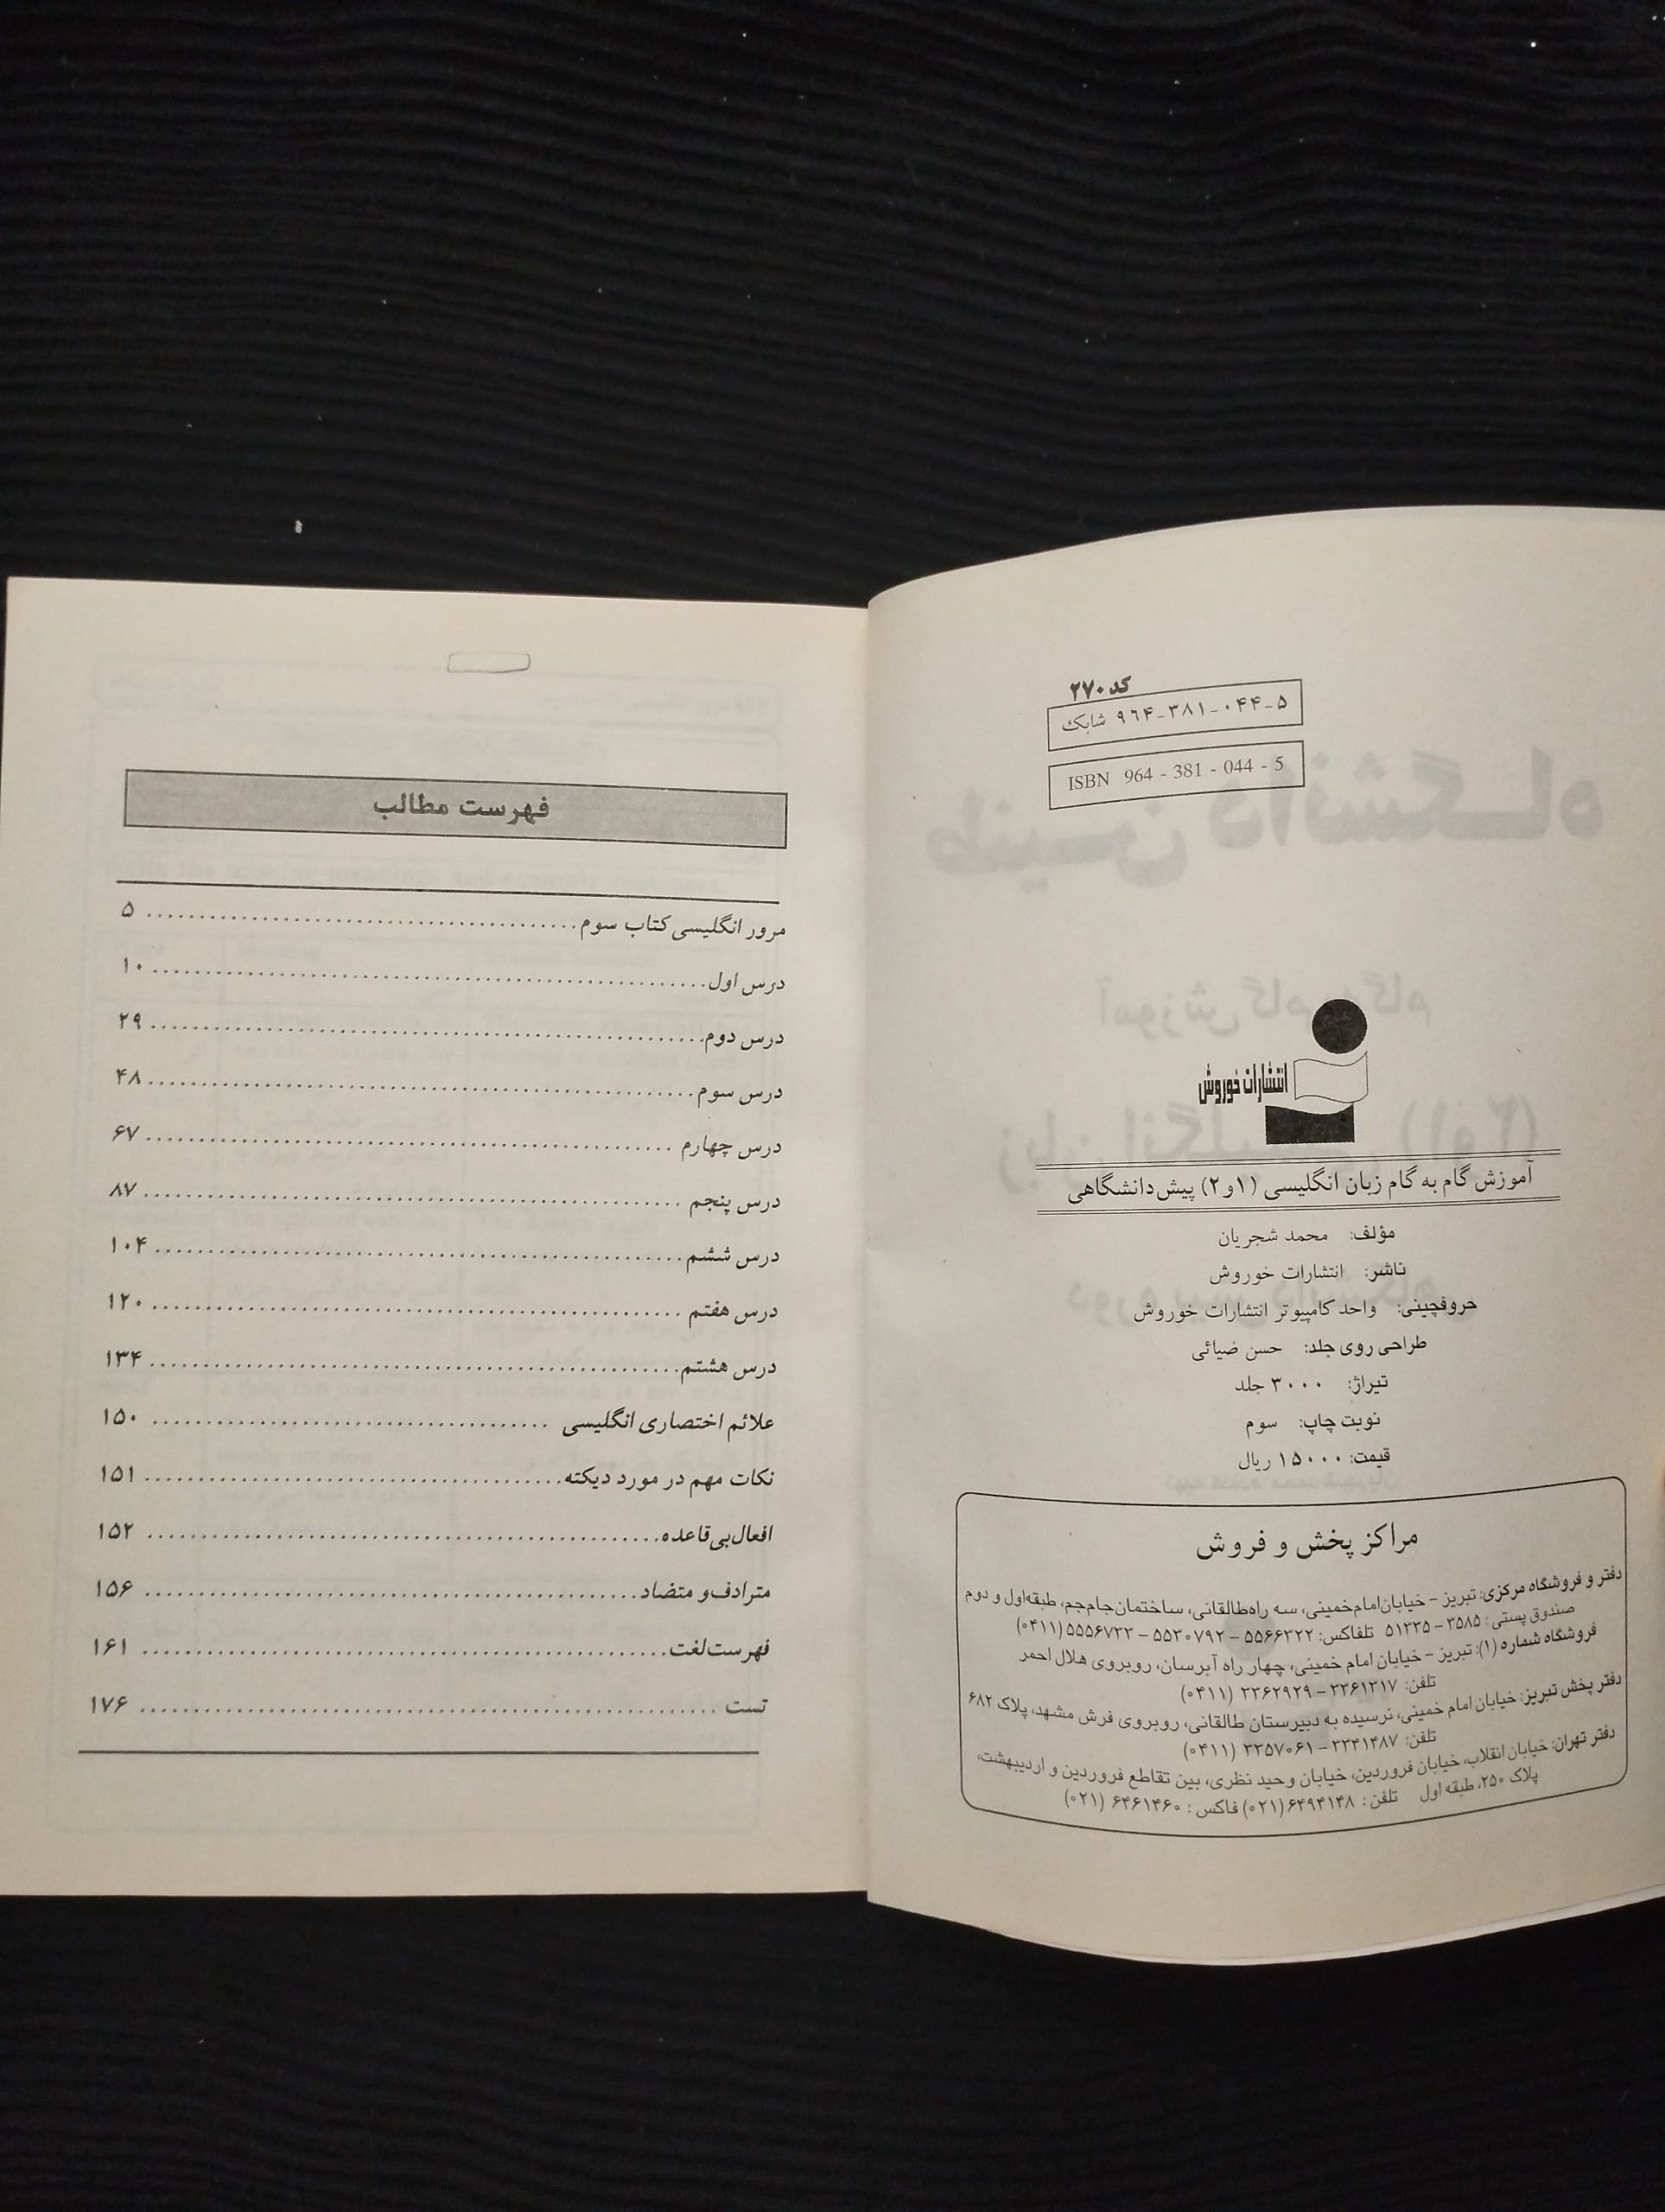 کد ۲۷۰
شابک ۹۶۴-۳۸۱-۰۴۴-۵
ISBN 964 - 381 - 044 - 5
انتشارات خوروش
آموزش گام به گام زبان انگلیسی (۱و۲) پیش‌دانشگاهی
مؤلف: محمد شجریان
ناشر: انتشارات خوروش
حروفچینی: واحد کامپیوتر انتشارات خوروش
طراحی روی جلد: حسن ضیائی
تیراژ: ۳۰۰۰ جلد
نوبت چاپ: سوم
قیمت: ۱۵۰۰۰ ریال
مراکز پخش و فروش
دفتر و فروشگاه مرکزی: تبریز - خیابان‌امام‌خمینی، سه راه‌طالقانی، ساختمان‌جام‌جم، طبقه‌اول و دوم
صندوق پستی: ۳۵۸۵ - ۵۱۳۳۵ تلفاکس: ۵۵۶۶۳۲۲ - ۵۵۳۰۷۹۲ - ۵۵۵۶۷۳۳ (۰۴۱۱)
فروشگاه شماره (۱): تبریز - خیابان امام خمینی، چهار راه آبرسان، روبروی هلال احمر
تلفن: ۳۳۶۱۳۱۷ - ۳۳۶۲۹۲۹ (۰۴۱۱)
دفتر پخش تبریز: خیابان امام خمینی، نرسیده به دبیرستان طالقانی، روبروی فرش مشهد، پلاک ۶۸۲
تلفن: ۳۳۴۱۴۸۷ - ۳۳۵۷۰۶۱ (۰۴۱۱)
دفتر تهران: خیابان انقلاب، خیابان فروردین، خیابان وحید نظری، بین تقاطع فروردین و اردیبهشت،
پلاک ۲۵۰، طبقه اول تلفن: ۶۴۹۴۱۴۸ (۰۲۱) فاکس: ۶۴۶۱۴۶۰ (۰۲۱)
فهرست مطالب
مرور انگلیسی کتاب سوم ........ ۵
درس اول ........ ۱۰
درس دوم ........ ۲۹
درس سوم ........ ۴۸
درس چهارم ........ ۶۷
درس پنجم ........ ۸۷
درس ششم ........ ۱۰۴
درس هفتم ........ ۱۲۰
درس هشتم ........ ۱۳۴
علائم اختصاری انگلیسی ........ ۱۵۰
نکات مهم در مورد دیکته ........ ۱۵۱
افعال بی‌قاعده ........ ۱۵۲
مترادف و متضاد ........ ۱۵۶
فهرست لغت ........ ۱۶۱
تست ........ ۱۷۶